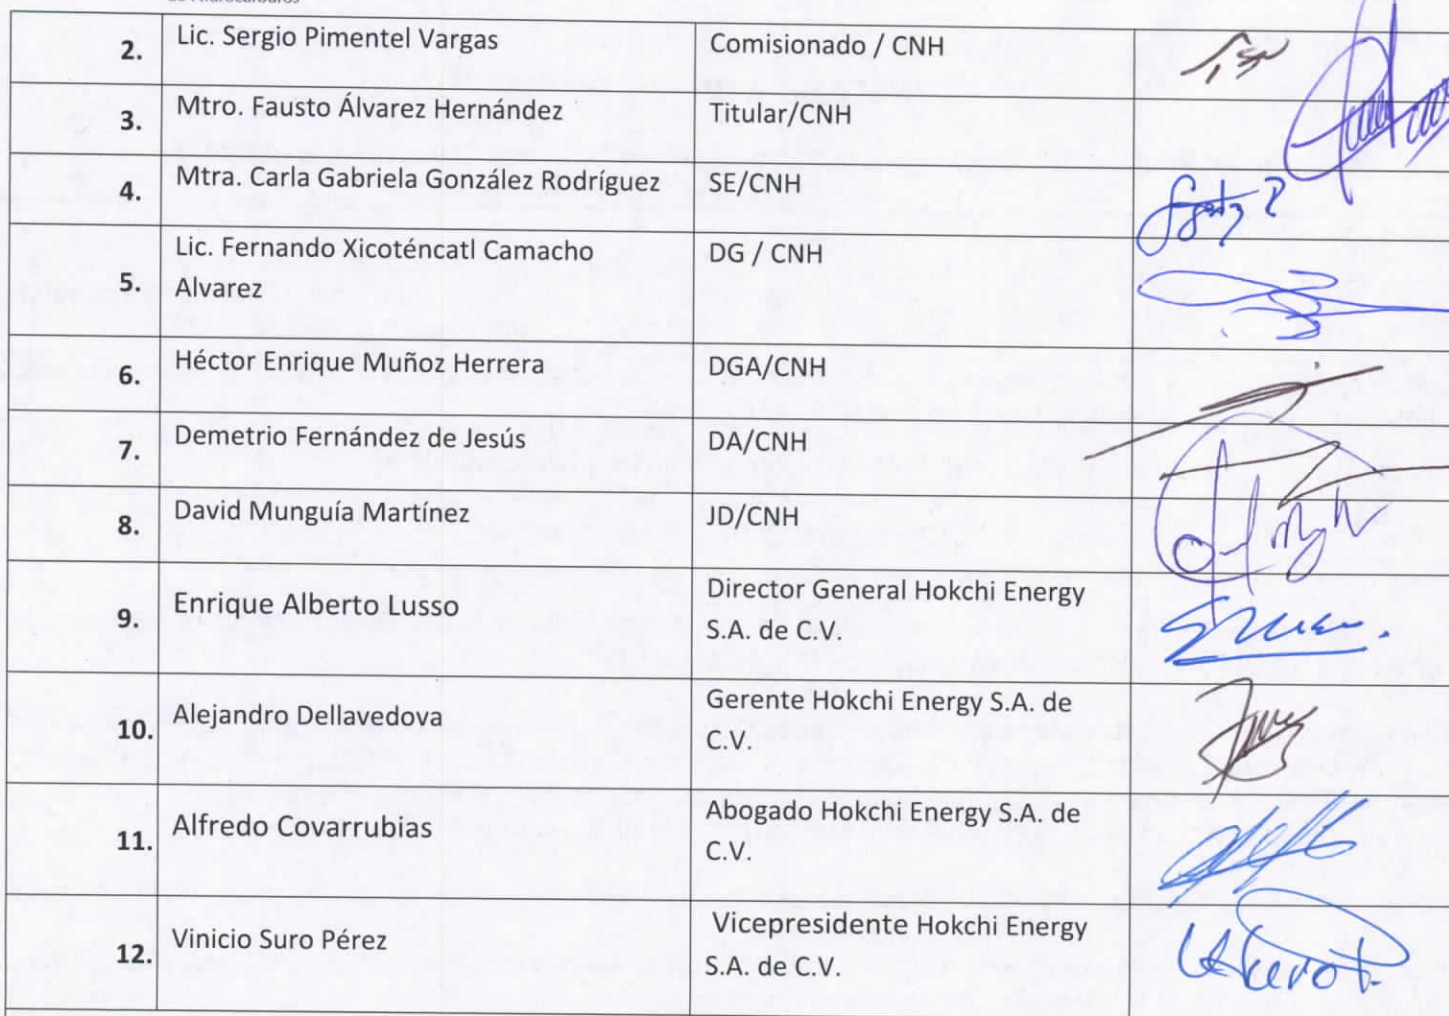 de Hidrocarburos
2. Lic. Sergio Pimentel Vargas Comisionado / CNH
3. Mtro. Fausto Álvarez Hernández Titular/CNH
4. Mtra. Carla Gabriela González Rodríguez SE/CNH
5. Lic. Fernando Xicoténcatl Camacho DG / CNH
Alvarez
6. Héctor Enrique Muñoz Herrera DGA/CNH
7. Demetrio Fernández de Jesús DA/CNH
8. David Munguía Martínez JD/CNH
9. Enrique Alberto Lusso Director General Hokchi Energy
S.A. de C.V.
10. Alejandro Dellavedova Gerente Hokchi Energy S.A. de
C.V.
11. Alfredo Covarrubias Abogado Hokchi Energy S.A. de
C.V.
12. Vinicio Suro Pérez Vicepresidente Hokchi Energy
S.A. de C.V.